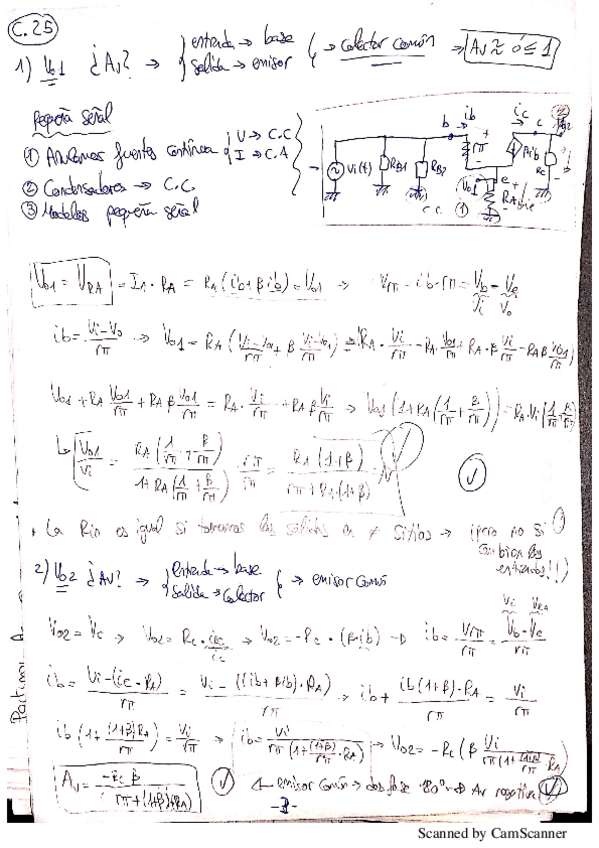 C.25
1) Vo1 ¿Av? → { entrada → base
salida → emisor } → Colector común → Av ≈ ó ≤ 1
pequeña señal
① Anulamos fuentes continua { V → C.C
I → C.A
② Condensadores → C.C.
③ Modelos pequeña señal
Vi(t) RB1 RB2 b ib rπ ic c Vo2 βib Rc e Vo1 RA
C.C. ①
Vo1 = VRA = I1 · RA = RA (ib + βib) = Vo1 → Vrπ = ib · rπ = Vb − Ve
Vi Vo
ib = (Vi − Vo)/rπ → Vo1 = RA ((Vi − Vo1)/rπ + β (Vi − Vo1)/rπ) = RA · Vi/rπ − RA · Vo1/rπ + RA · β Vi/rπ − RA β Vo1/rπ
Vo1 + RA Vo1/rπ + RA β Vo1/rπ = RA · Vi/rπ + RA β Vi/rπ → Vo1 (1 + RA (1/rπ + β/rπ)) = RA · Vi (1/rπ + β/rπ)
↳ Vo1/Vi = RA (1/rπ + β/rπ) / (1 + RA (1/rπ + β/rπ)) · rπ/rπ = RA (1+β) / (rπ + RA (1+β))
La Rin es igual si tomamos las salidas en ≠ sitios → ¡pero no si
cambian las
entradas!!)
2) Vo2 ¿Av? → { entrada → base
salida → colector } → emisor común
Vi VRA
Vo2 = Vc → Vo2 = Rc · ic → Vo2 = −Rc · (β · ib) → ib = Vrπ/rπ = (Vb − Ve)/rπ
ib = (Vi − (ic · RA))/rπ = (Vi − ((ib + βib) · RA))/rπ → ib + (ib (1+β) · RA)/rπ = Vi/rπ
ib (1 + ((1+β) RA)/rπ) = Vi/rπ → ib = Vi / (rπ (1 + (1+β)/rπ · RA)) → Vo2 = −Rc (β Vi / (rπ (1 + (1+β)/rπ RA)))
Av = −Rc β / (rπ + (1+β) · RA) ← emisor común → desfase 180° → Av negativa
-3-
Scanned by CamScanner